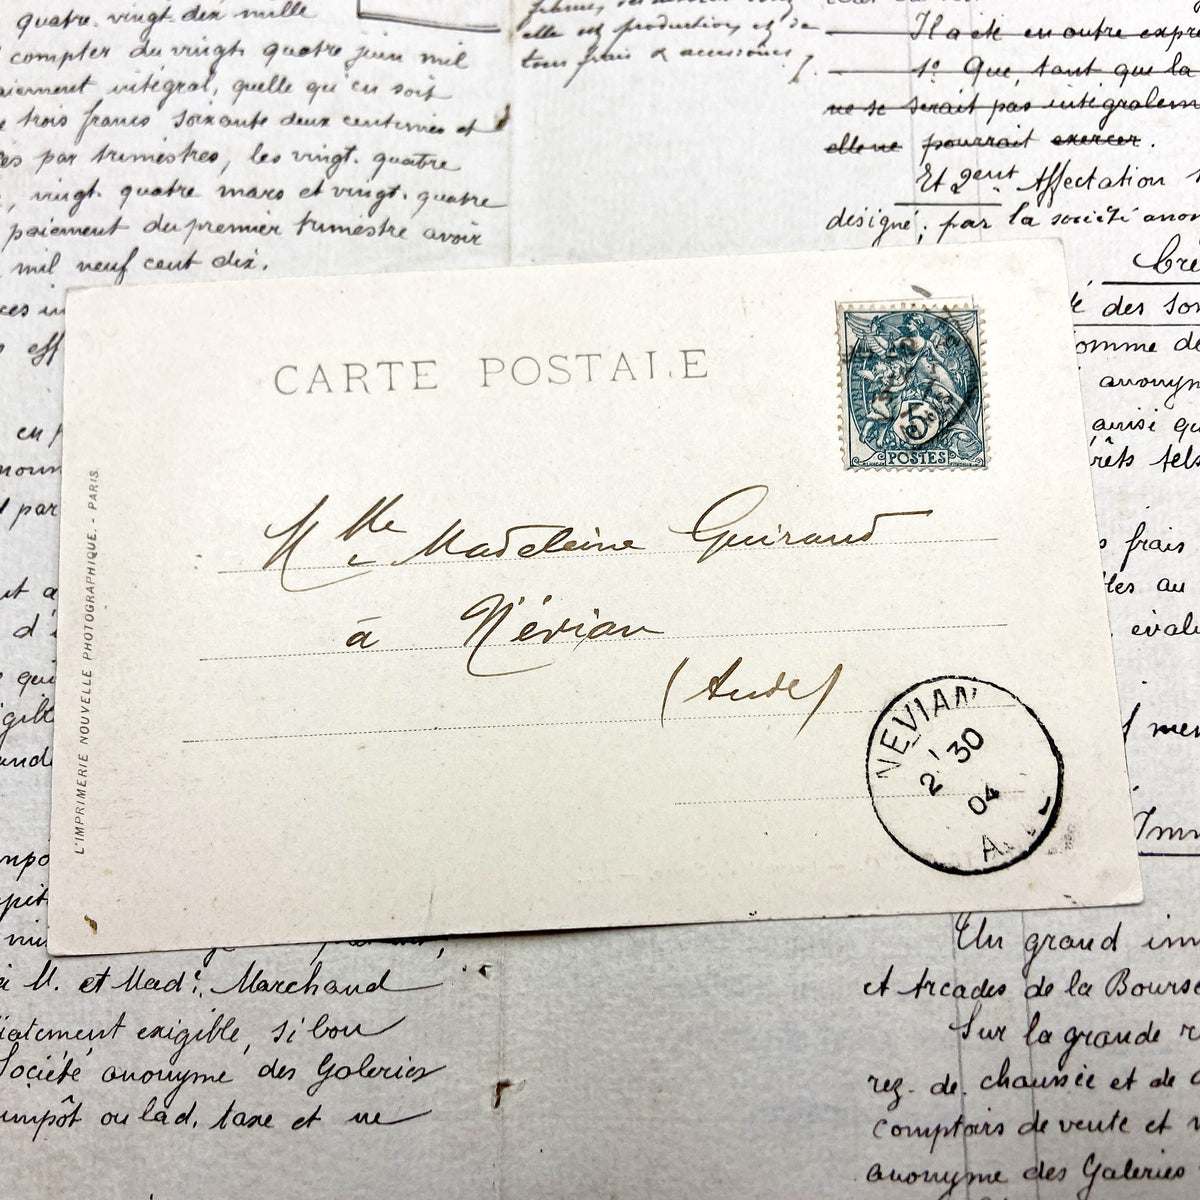 quatre vingt dix mille
compter du vingt quatre juin mil
paiement intégral, quelle qu'en soit
trois francs soixante deux centimes et
par trimestres, les vingt. quatre
, vingt. quatre mars et vingt. quatre
paiement du premier trimestre avoir
mil neuf cent dix.
elle est production, et de
tous frais & accessoires
Il a été en outre expre
1º Que, tant que la
ne se serait pas intégralem
elle ne pourrait exercer.
Et 2ent Affectation
désigné, par la société anon
Cré
des Son
omme de
anonym
ainsi qu
rêts tels
frais
tes au
évalu
CARTE POSTALE
5
POSTES
Mlle Madeleine Guiraud
à Névian
(Aude)
NEVIAN
2 30
04
A
L'IMPRIMERIE NOUVELLE PHOTOGRAPHIQUE. - PARIS.
à M. et Made. Marchand
iatement exigible, si bon
Société anonyme des Galeries
impôt ou lad. taxe et ne
Un grand imm
et Arcades de la Bourse
Sur la grande r
rez. de. chaussée et de
comptoirs de vente et
anonyme des Galeries